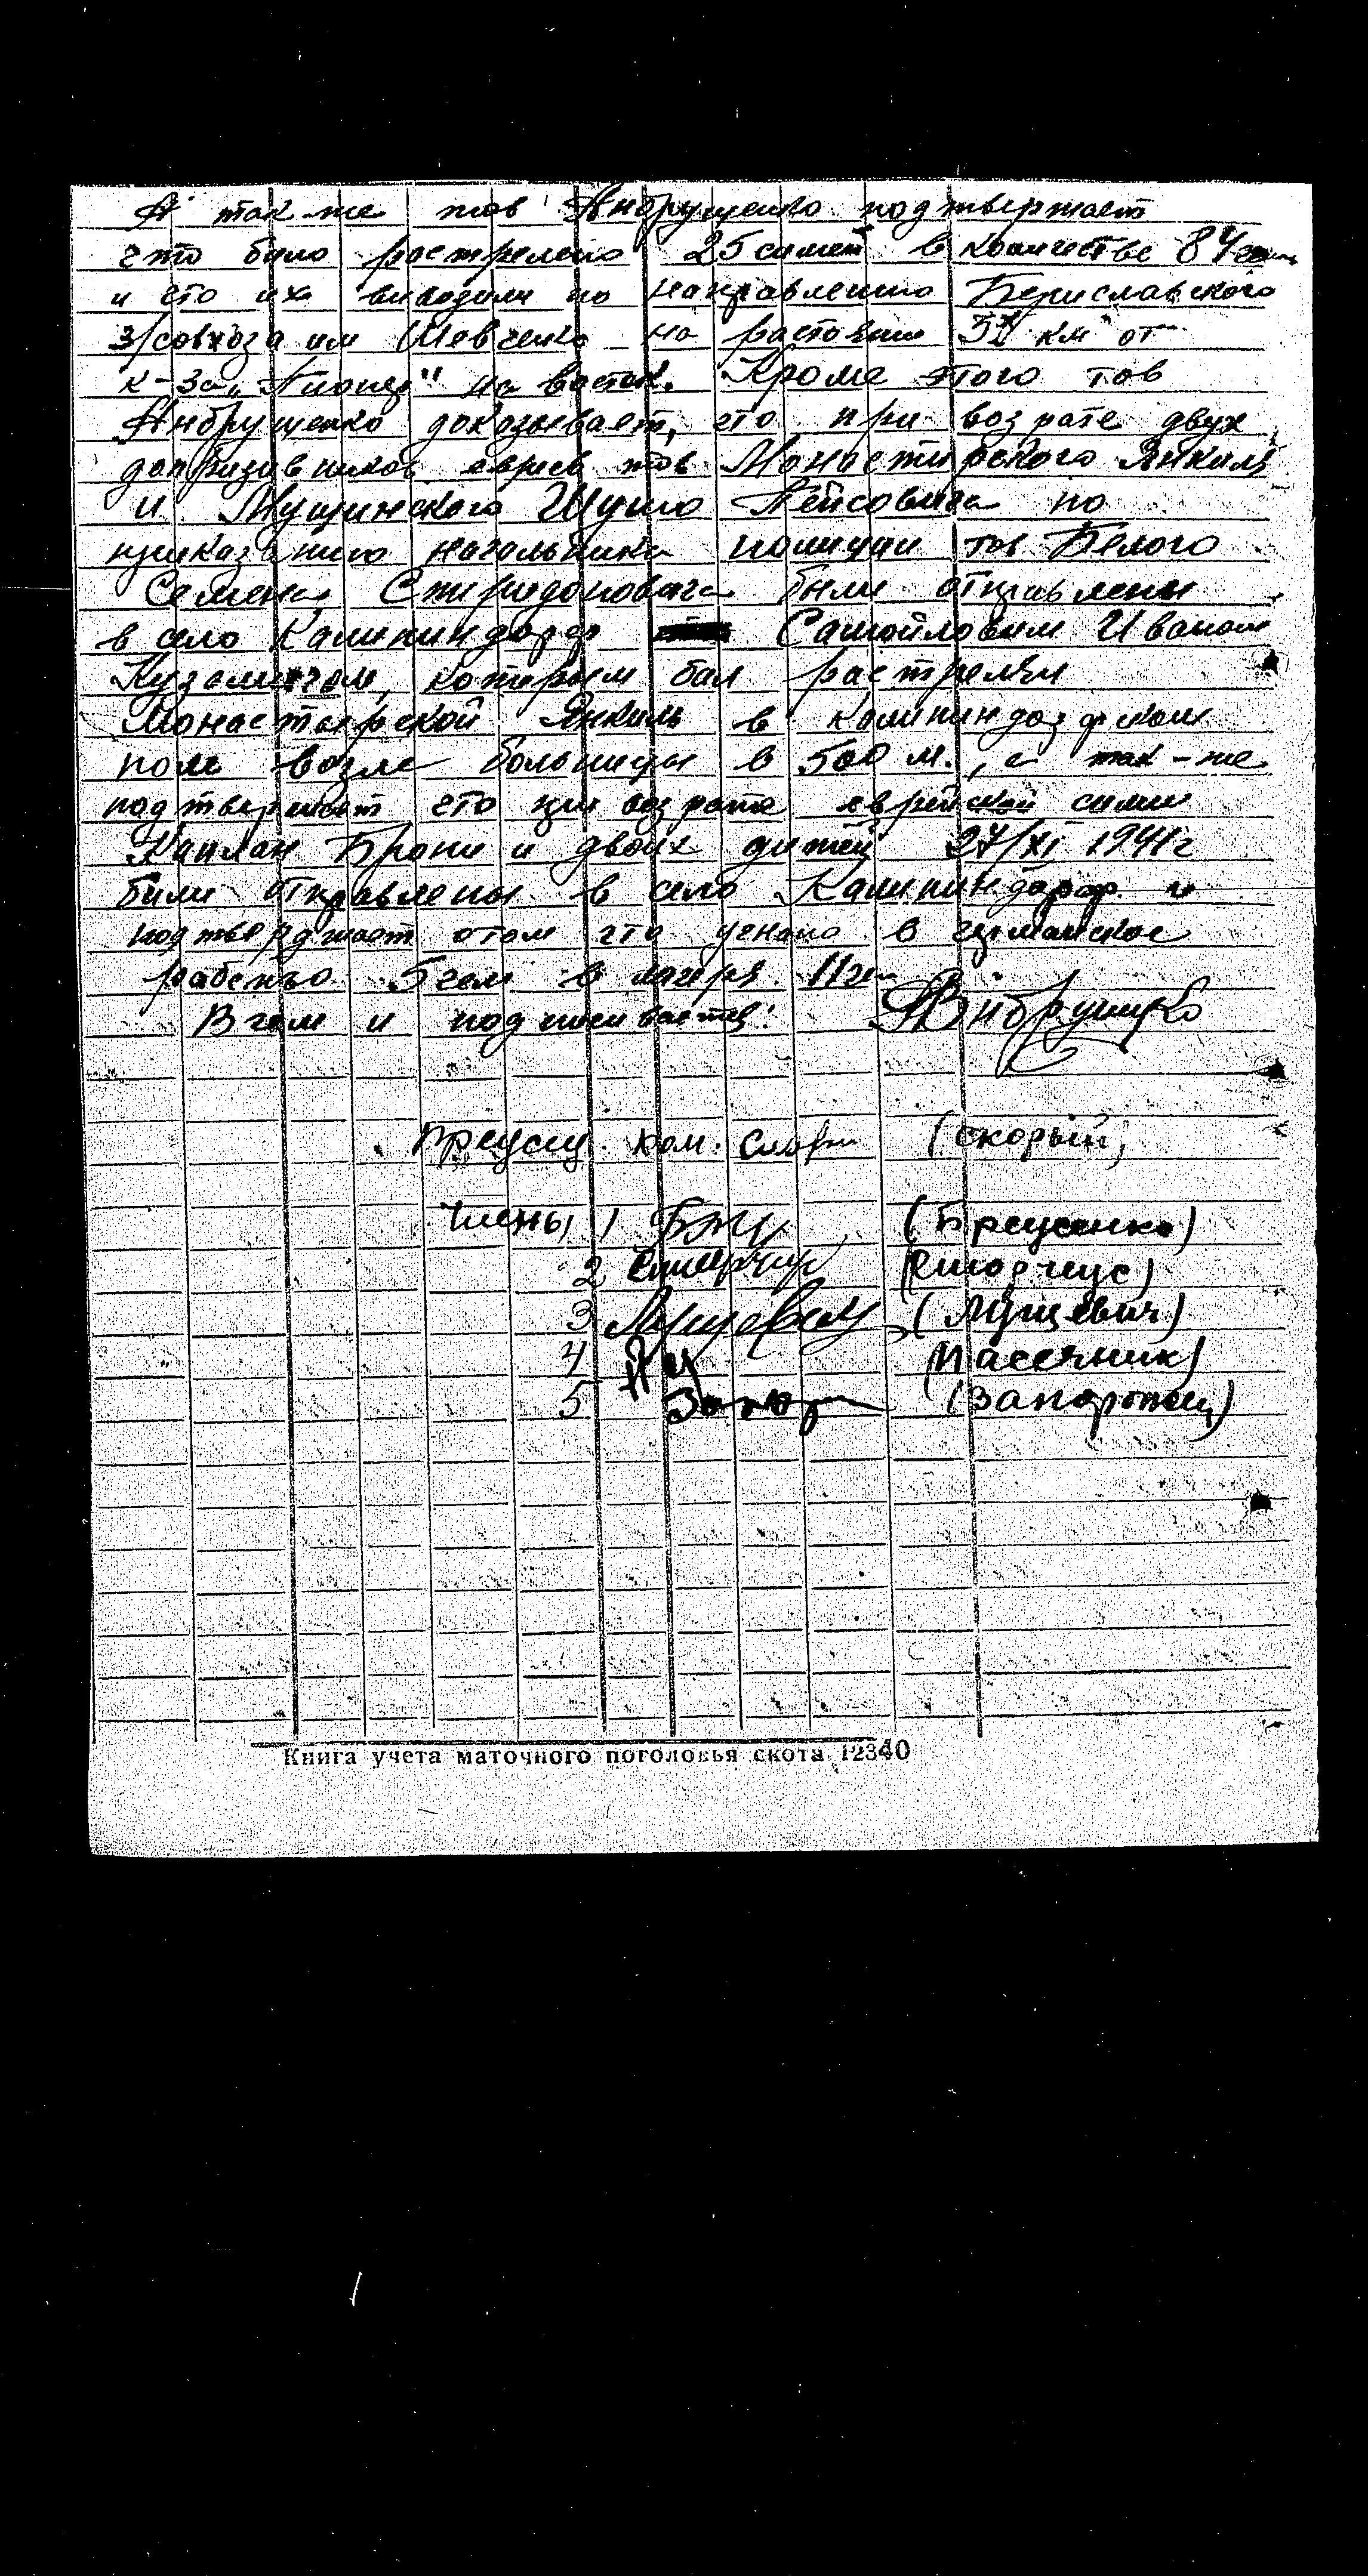 А так же тов Анбрущенко подтвержает
что било растрелено 25 симей в количестве 84
и сто их виводили по направлению Бериславского
з/совхоза им Шевченко на растоянии км от
к-за "Пионер" на восток. Кроме этого тов
Анбрущенко доказывает, что при возрате двух
допризивников евреев тов Монастирского Янкиля
и Мущинского Шулио Пейсовича по
приказанию начальника полиции тов Белого
Семена Спиридоновича были отправлены
в село Калининдорф Самойловим Иваном
Кузмичом, которым бил растрелян
Монастырской Янкиль в калининдорфском
поле возле больницы в 500 м., а так-же
подтвержает что при возрате еврейской симии
Каплан Брони и двоих дитей 27/XI 1941г
били отправлены в село Калининдорф и
подтверджает отом что угнано в германское
рабство 5 чел в лагеря 11
В чем и подписивается: Анбрущенко
Предсщ. ком. (Скорый)
Члены 1 (Бреусенко)
2 (Сторчеус)
3 Луцевич (Луцевич)
4 (Пасечник)
5 Запор (Запорожец)
Книга учета маточного поголовья скота 12340